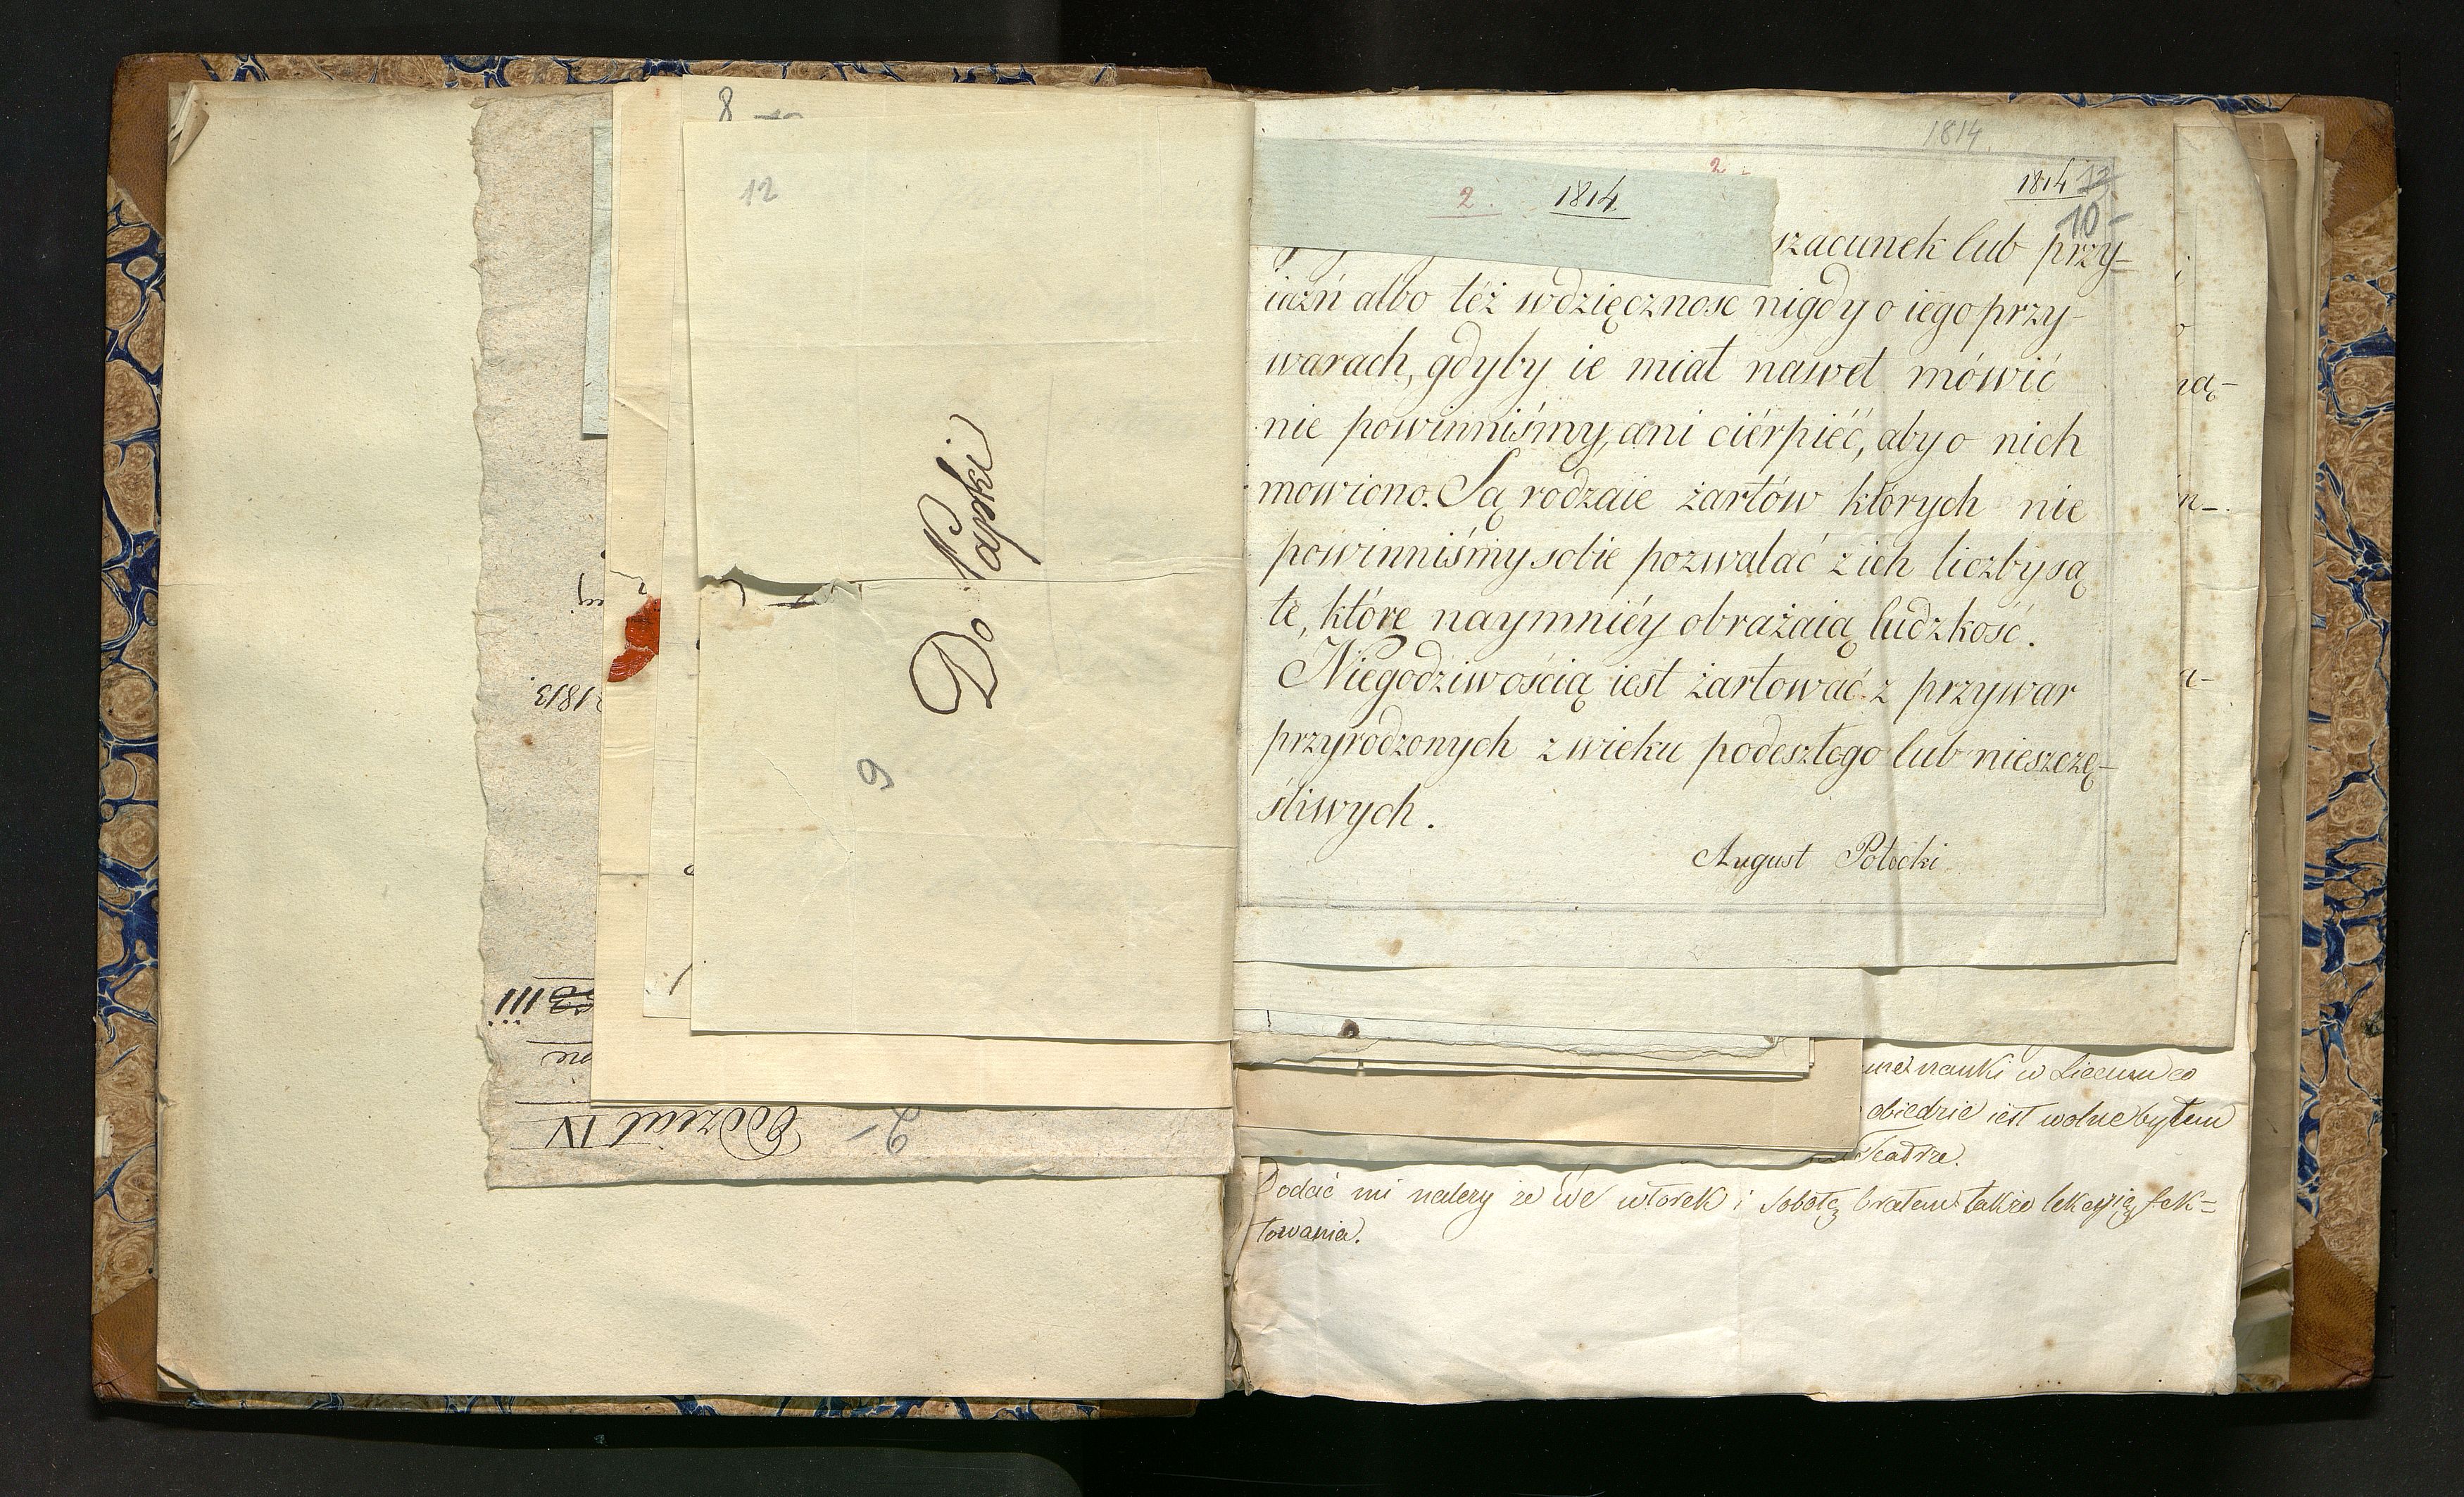 8
12
Do Papki
9
1813.
III
Oddział IV
2-
1814.
2-
2. 1814
1814 12
10-
szacunek lub przy-
iaźń albo też wdzięcznosc nigdy o iego przy-
warach, gdyby ie miał nawet mówić
nie powinniśmy, ani ciérpiéć, aby o nich
mowiono. Są rodzaie żartów których nie
powinniśmy sobie pozwalać z ich liczby są
te, które naymniéy obrażaią ludzkość.
Niegodziwością iest żartować z przywar
przyrodzonych z wieku podeszłego lub nieszczę-
śliwych.
August Potocki
ną-
n-
a-
nauki w Liceum co
obiedzie iest wolne byłem
Teatrze.
Dodać mi należy że we wtorek i Sobotę brałem także lekcyię fek=
towania.